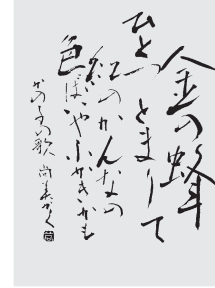 金の蜂
ひとつとまりて
紅のかんなの
色ほいやふかきかも
かの子の歌 尚美かく